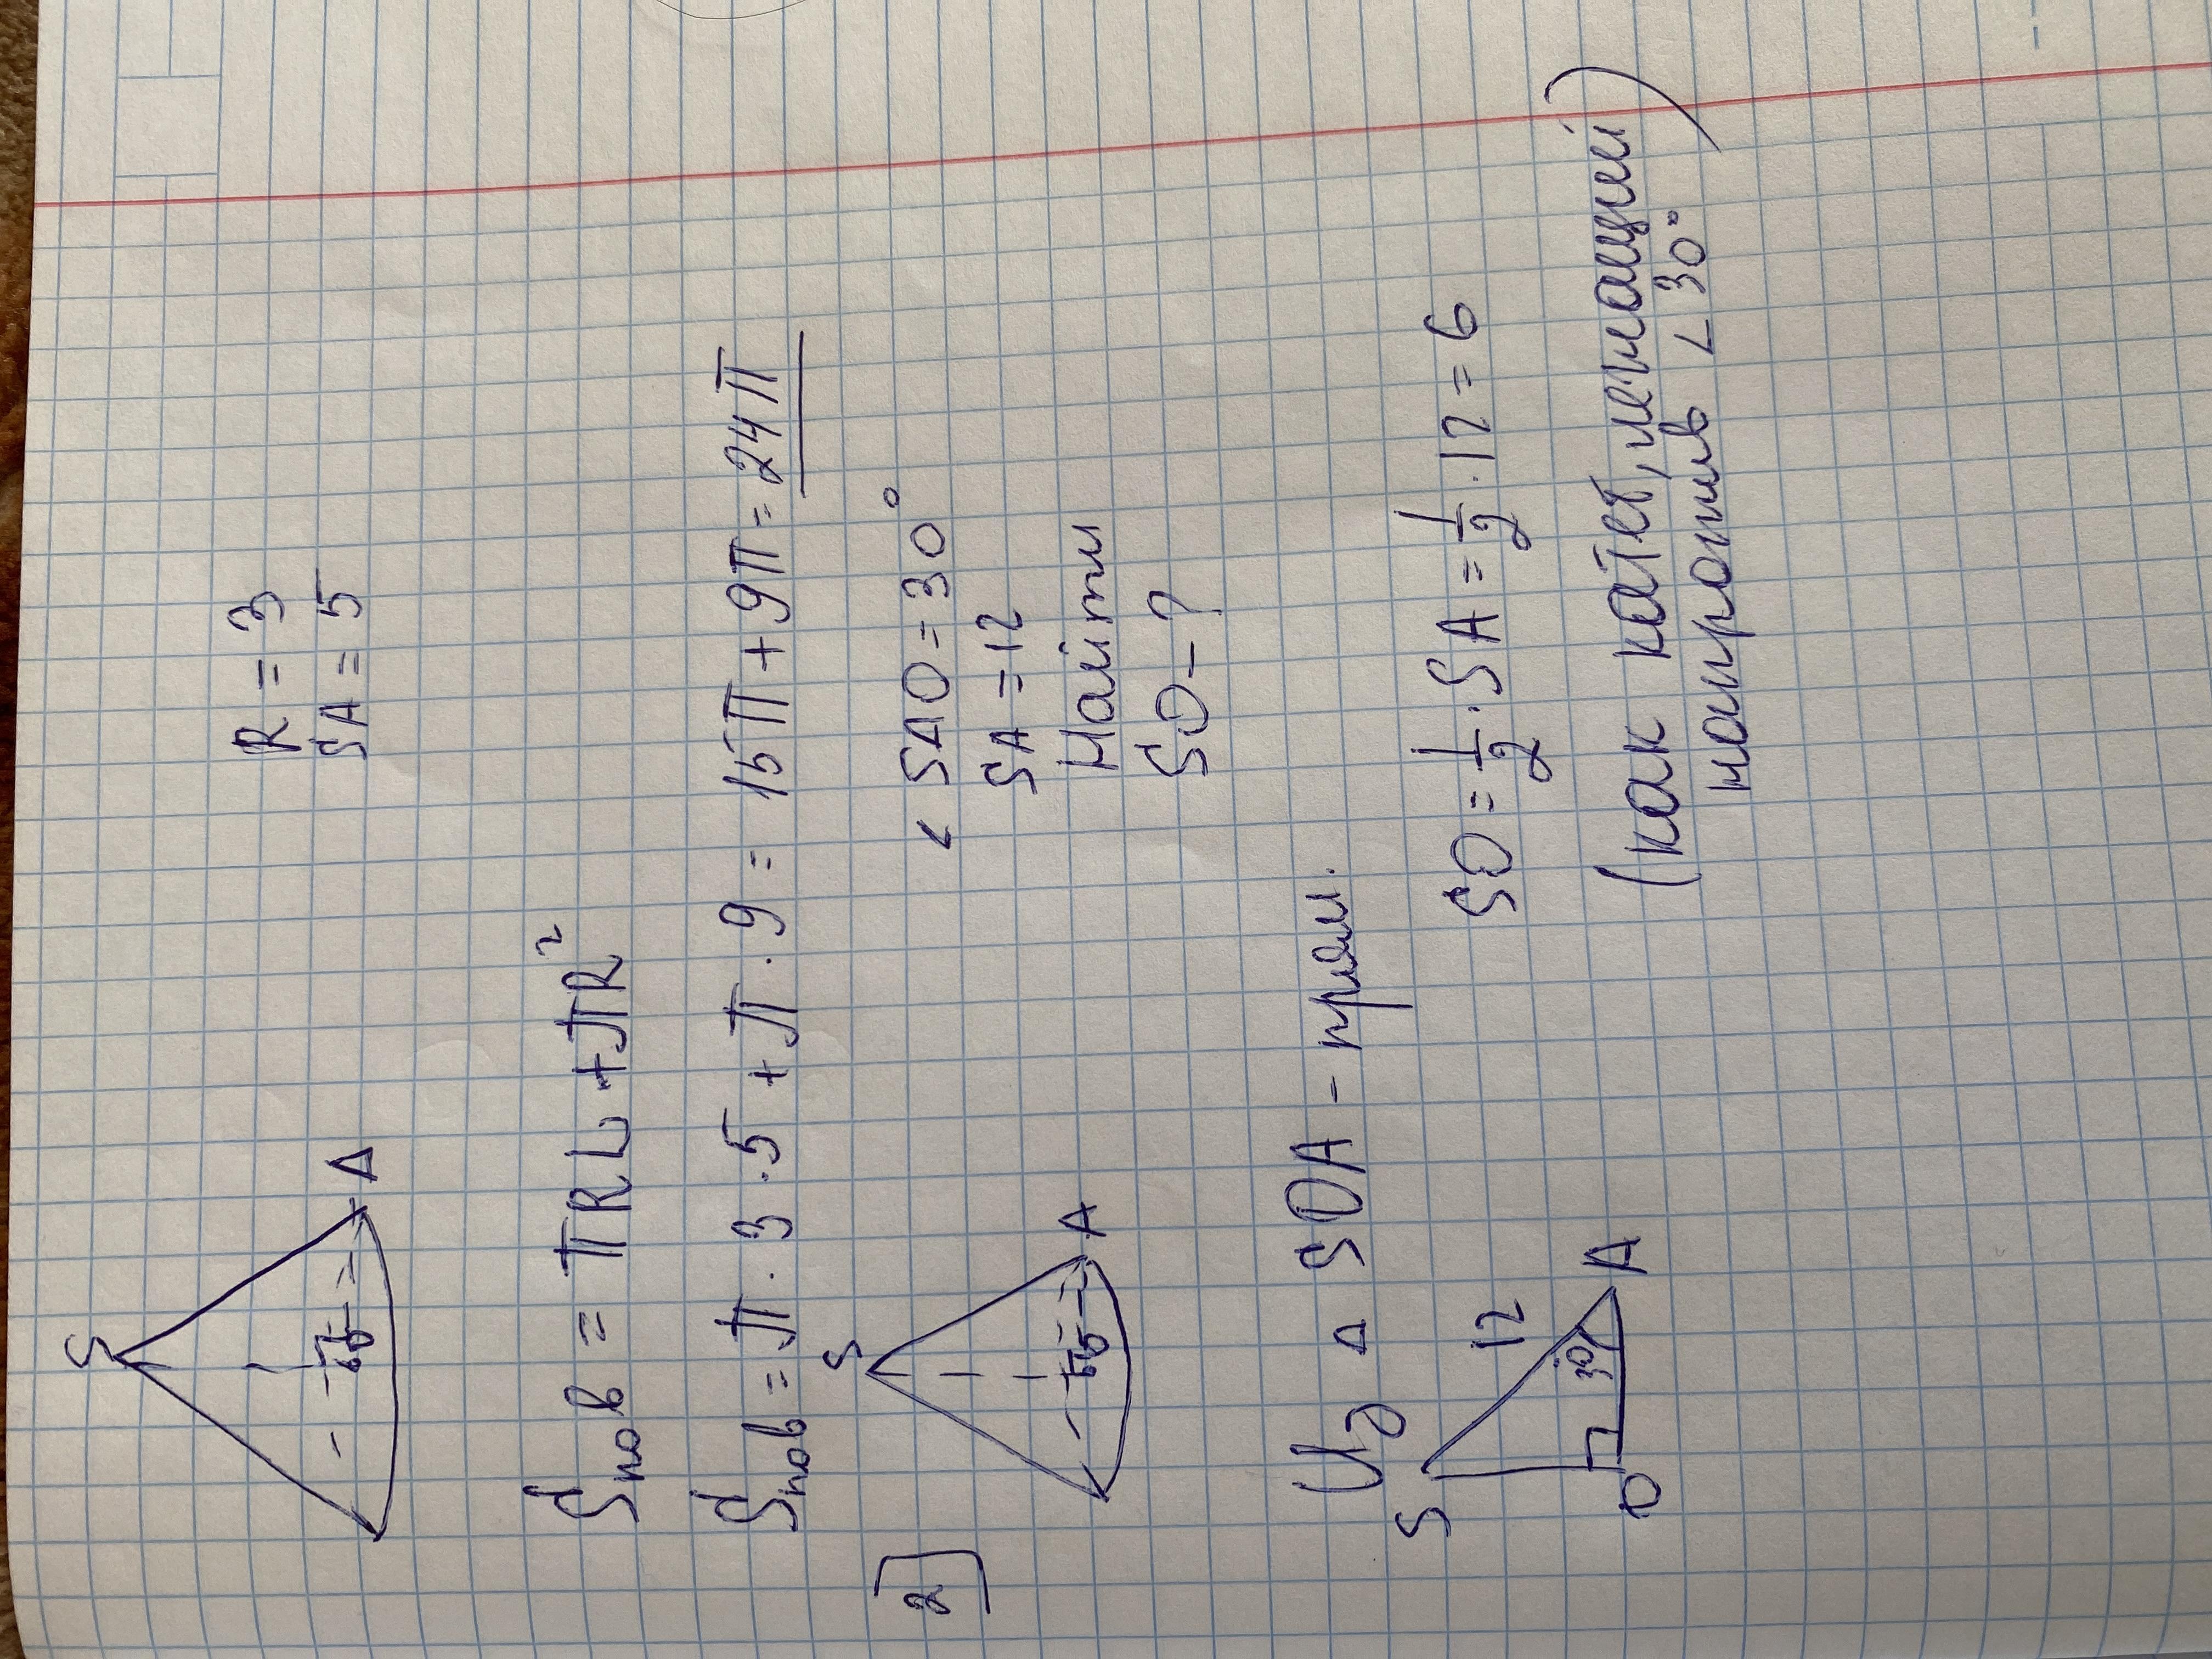 S
A
R = 3
SA = 5
Sпов = πRL + πR²
Sпов = π · 3 · 5 + π · 9 = 15π + 9π = 24π
2
S
A
< SAO = 30°
SA = 12
Найти
SO - ?
Из △ SOA - прям.
S
12
30
O
A
SO = 1/2 · SA = 1/2 · 12 = 6
(как катет, лежащий
напротив < 30°)